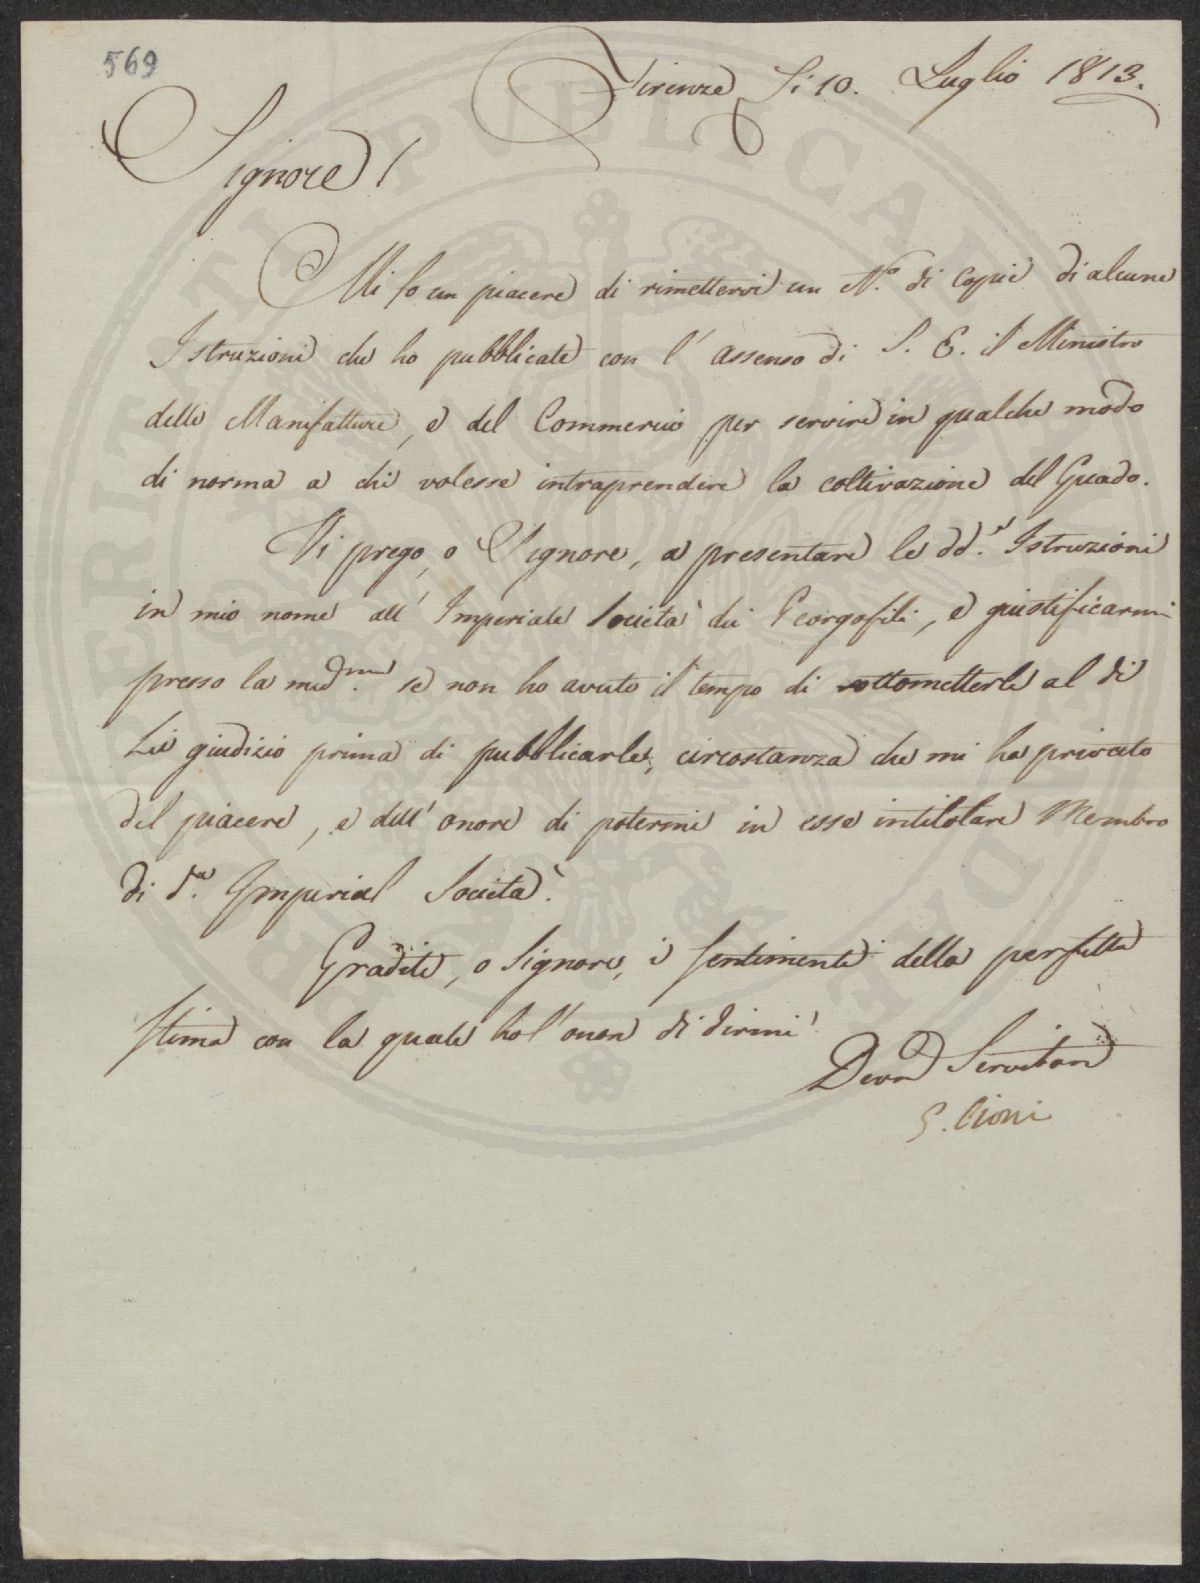 569
Firenze Li 10. Luglio 1813.
Signore!
Mi fo un piacere di rimettervi un N.º di Copie di alcune
Istruzioni che ho pubblicate con l'assenso di S. E. il Ministro
delle Manifatture, e del Commercio per servire in qualche modo
di norma a chi volesse intraprendere la coltivazione del Guado.
Vi prego, o Signore, a presentare le dd.e Istruzioni
in mio nome all'Imperiale Società dei Georgofili, e giustificarmi
presso la med.ma se non ho avuto il tempo di sottometterle al di
Lei giudizio prima di pubblicarle, circostanza che mi ha privato
del piacere, e dell'onore di potermi in esse intitolare Membro
di d.a Imperial Società.
Gradite, o Signore, i sentimenti della perfetta
stima con la quale ho l'onor di dirmi
Devo Servitore
G. Cioni